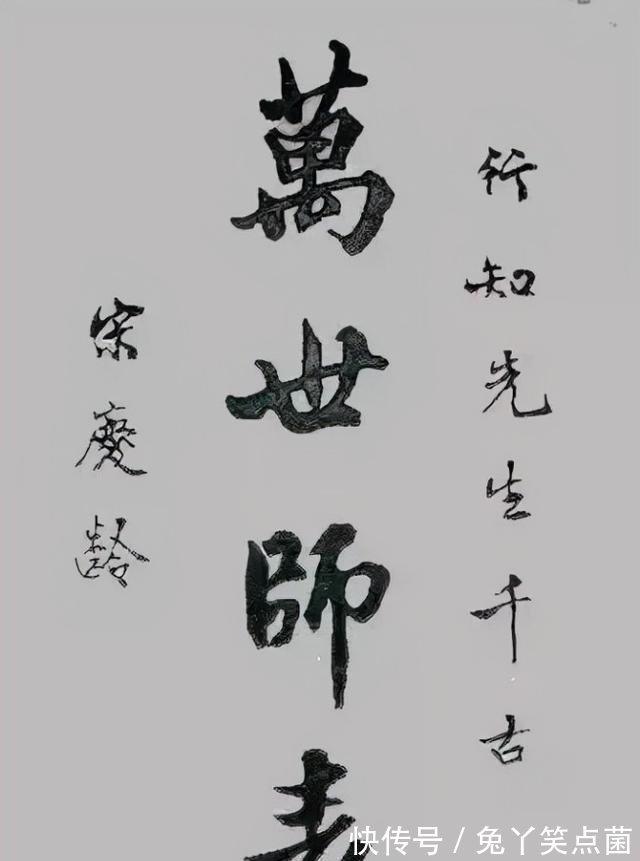 行知先生千古
萬世師表
宋慶齡
快传号/兔丫笑点菌